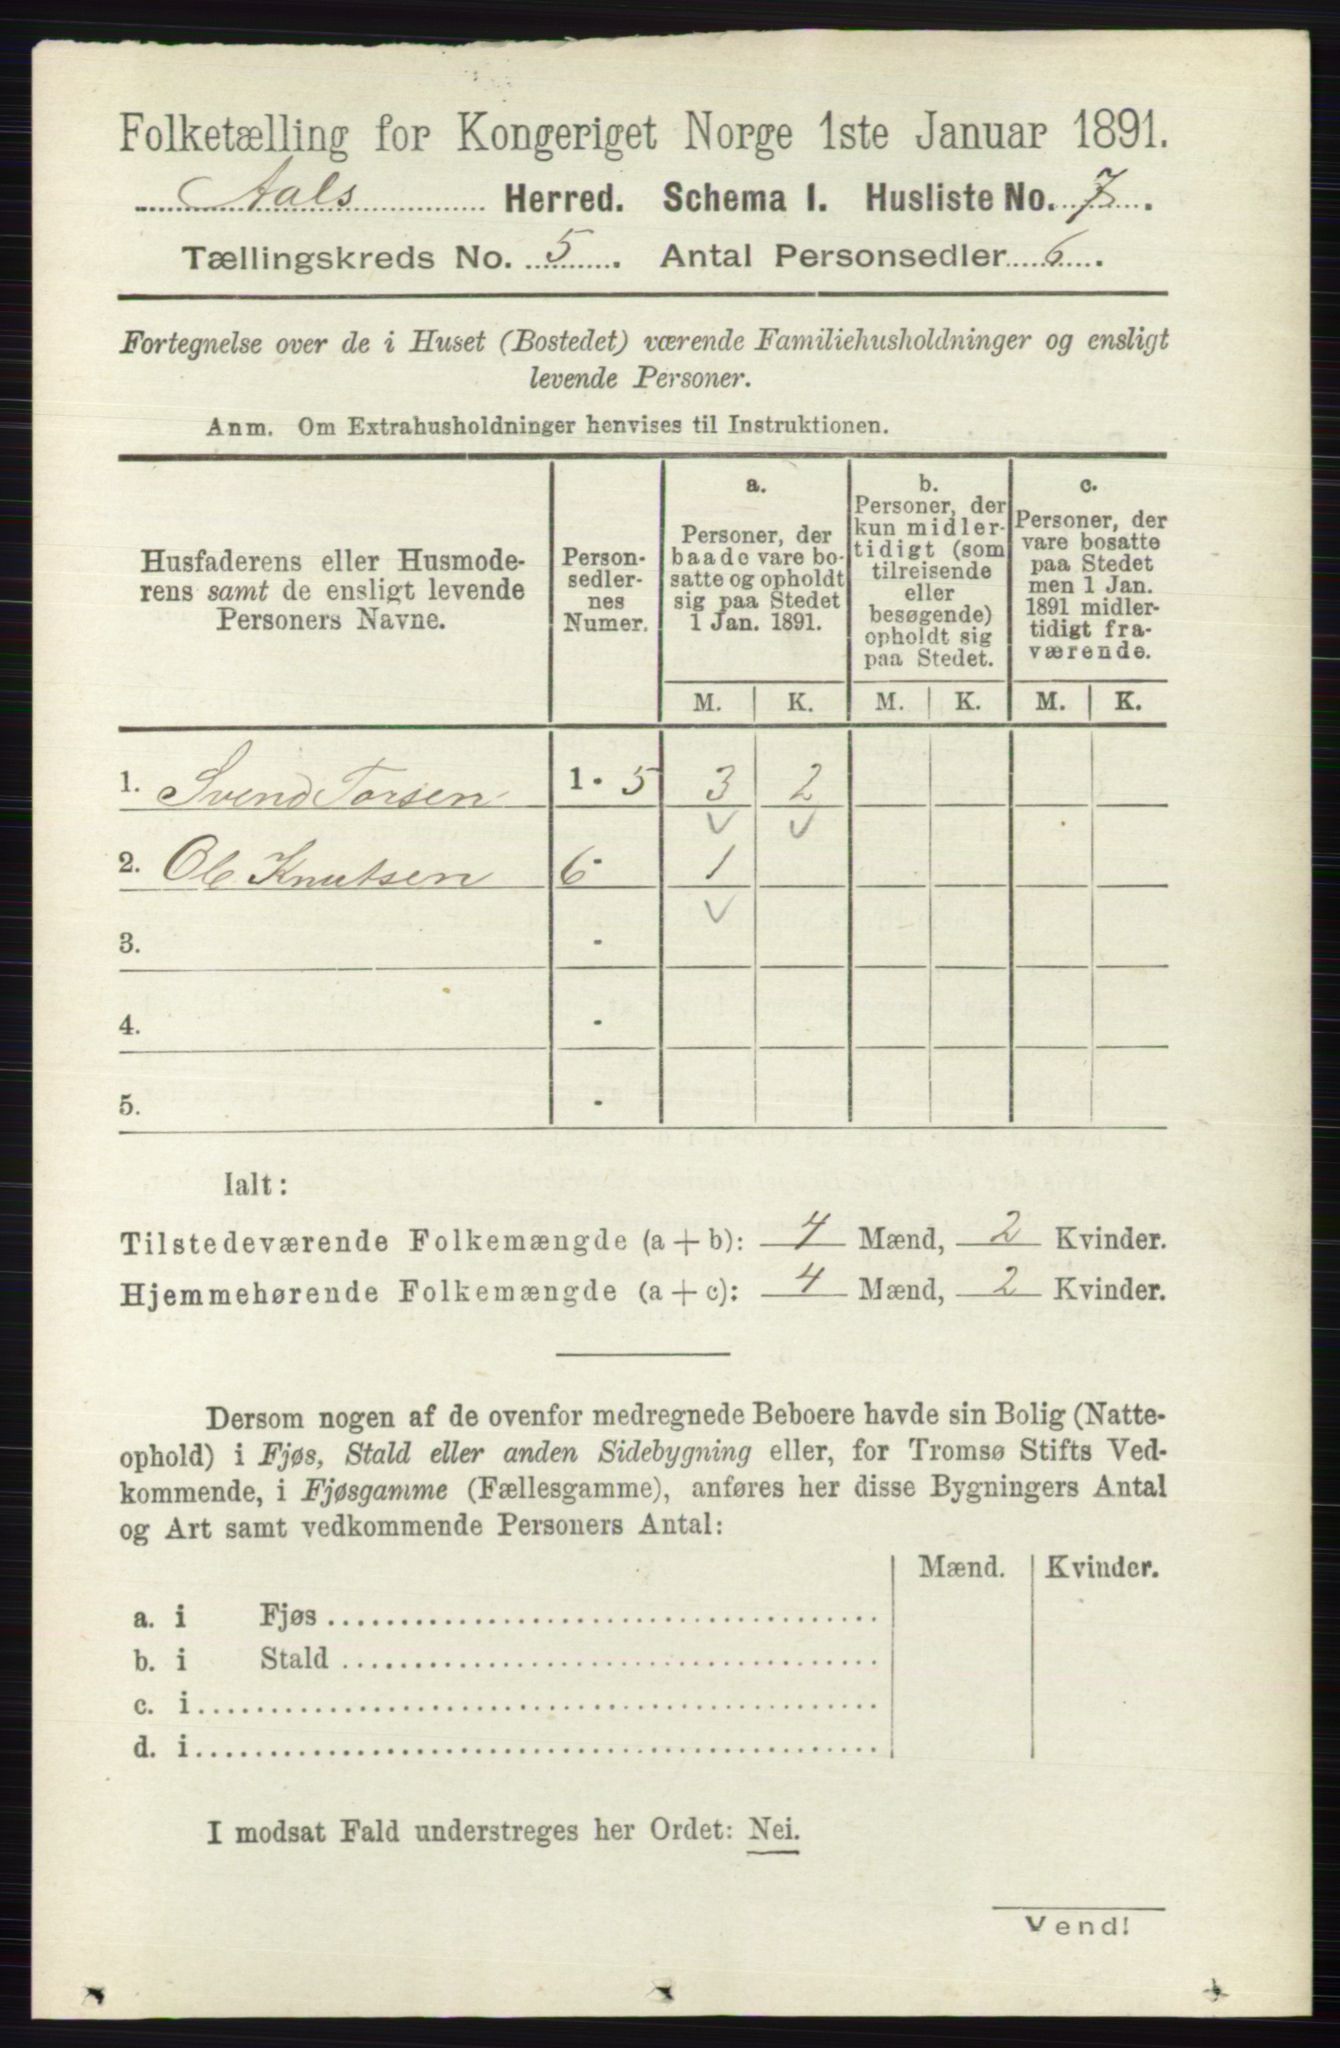 Folketælling for Kongeriget Norge 1ste Januar 1891.
Aals Herred. Schema I. Husliste No. 7.
Tællingskreds No. 5. Antal Personsedler 6.
Fortegnelse over de i Huset (Bostedet) værende Familiehusholdninger og ensligt
levende Personer.
Anm. Om Extrahusholdninger henvises til Instruktionen.
Husfaderens eller Husmode-
rens samt de ensligt levende
Personers Navne.
Person-
sedler-
nes
Numer.
a.
Personer, der
baade vare bo-
satte og opholdt
sig paa Stedet
1 Jan. 1891.
b.
Personer, der
kun midler-
tidigt (som
tilreisende
eller
besøgende)
opholdt sig
paa Stedet.
c.
Personer, der
vare bosatte
paa Stedet
men 1 Jan.
1891 midler-
tidigt fra-
værende.
M. K. M. K. M. K.
1. Svend Torsen 1 - 5 3 2
2. Ole Knutsen 6 - 1
3. -
4. -
5. -
Ialt:
Tilstedeværende Folkemængde (a + b): 4 Mænd, 2 Kvinder.
Hjemmehørende Folkemængde (a + c): 4 Mænd, 2 Kvinder.
Dersom nogen af de ovenfor medregnede Beboere havde sin Bolig (Natte-
ophold) i Fjøs, Stald eller anden Sidebygning eller, for Tromsø Stifts Ved-
kommende, i Fjøsgamme (Fællesgamme), anføres her disse Bygningers Antal
og Art samt vedkommende Personers Antal:
Mænd. Kvinder.
a. i Fjøs
b. i Stald
c. i
d. i
I modsat Fald understreges her Ordet: Nei.
Vend!